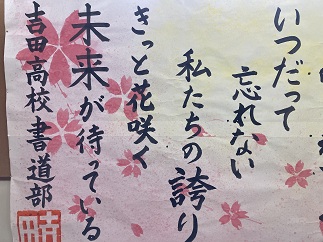 いつだって
忘れない
私たちの誇り
きっと花咲く
未来が待っている
吉田高校書道部